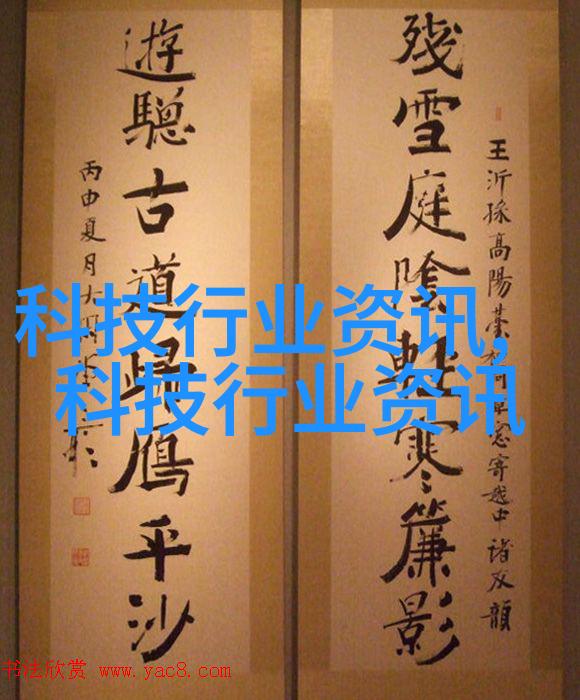 王沂孫高陽臺和周草窓寄越中諸友韻
殘雪庭陰輕寒簾影
遊驄古道歸鴈平沙
丙申夏月大
科技行业资讯,
科技行业资讯
书法欣赏 www.yac8.com